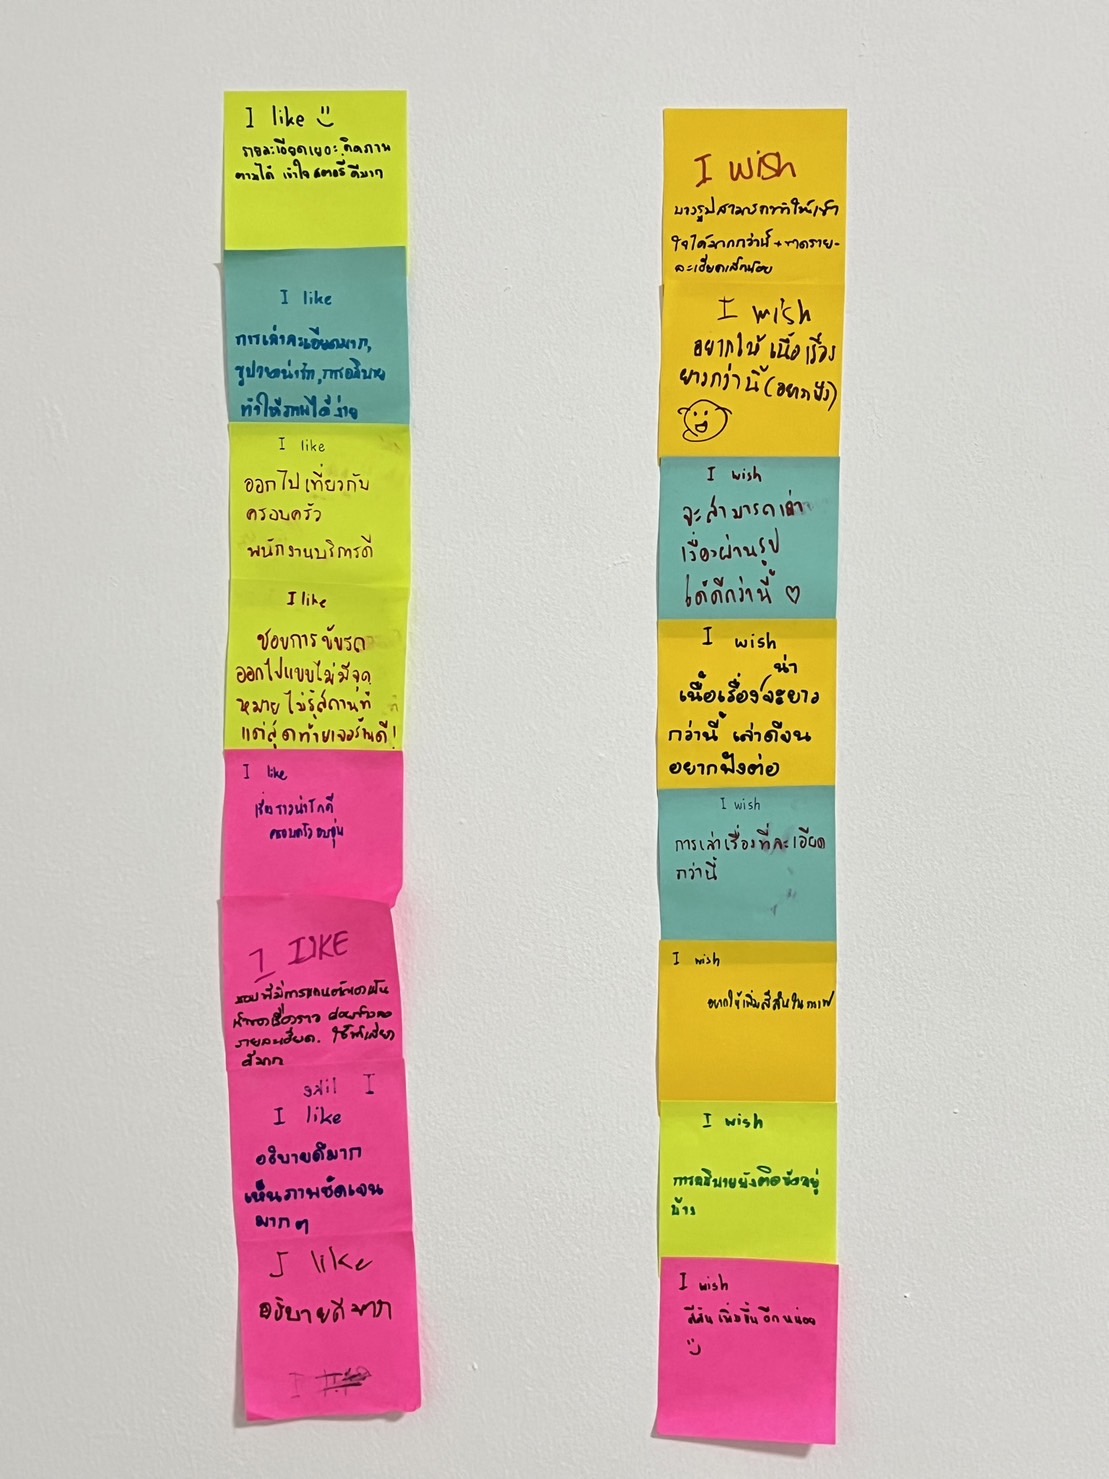 I like
รายละเอียดเยอะ คิดภาพ
ตามได้ เข้าใจ สตอรี่ ดีมาก
I like
การเล่าละเอียดมาก,
รูปวาดน่ารัก, การอธิบาย
ทำให้ภาพได้ง่าย
I like
ออกไปเที่ยวกับ
ครอบครัว
พนักงานบริการดี
I like
ชอบการขับรถ
ออกไปแบบไม่มีจุด
หมาย ไม่รู้สถานที่
แต่สุดท้ายเจอร้านดี!
I like
เรื่องราวน่ารักดี
ครอบครัวอบอุ่น
I LIKE
ชอบที่มีการ
เรื่องราว
รายละเอียด. ใช้
ดีมาก
I like
I like
อธิบายดีมาก
เห็นภาพชัดเจน
มากๆ
I like
อธิบายดีมาก
I
I wish
บางรูปสามารถทำให้เข้า
ใจได้มากกว่านี้ + ขาดราย-
ละเอียดเล็กน้อย
I wish
อยากให้ เนื้อเรื่อง
ยาวกว่านี้ (อยากฟัง)
I wish
จะสามารถเล่า
เรื่องผ่านรูป
ได้ดีกว่านี้ ♡
I wish
น่า
เนื้อเรื่อง จะยาว
กว่านี้ เล่าดีจน
อยากฟังต่อ
I wish
การเล่าเรื่องที่ละเอียด
กว่านี้
I wish
อยากให้เพิ่มสีสันในภาพ
I wish
การอธิบายยังติดขัดอยู่
บ้าง
I wish
สีสันเพิ่มขึ้นอีกหน่อย